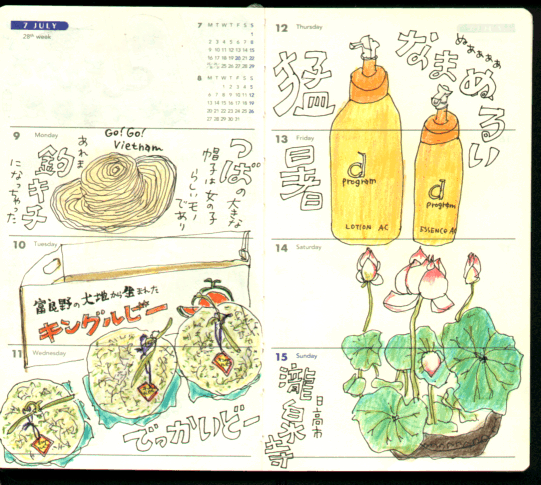 7 JULY
28th week
7 M T W T F S S
1
2 3 4 5 6 7 8
9 10 11 12 13 14 15
16 17 18 19 20 21 22
8 M T W T F S S
1 2 3 4 5
6 7 8 9 10 11 12
13 14 15 16 17 18 19
20 21 22 23 24 25 26
27 28 29 30 31
9 Monday
Go! Go!
Vietnam
つばの大きな
帽子は女の子
らしいモノ
であり
あれま
釣キチ
になっちゃった。
10 Tuesday
富良野の大地から生まれた
キングルビー
11 Wednesday
でっかいどー
12 Thursday
ぬぁぁぁぁ
なまぬるい
猛暑
13 Friday
d
program
LOTION AC
d
program
ESSENCE AC
14 Saturday
15 Sunday
日高市
瀧泉寺